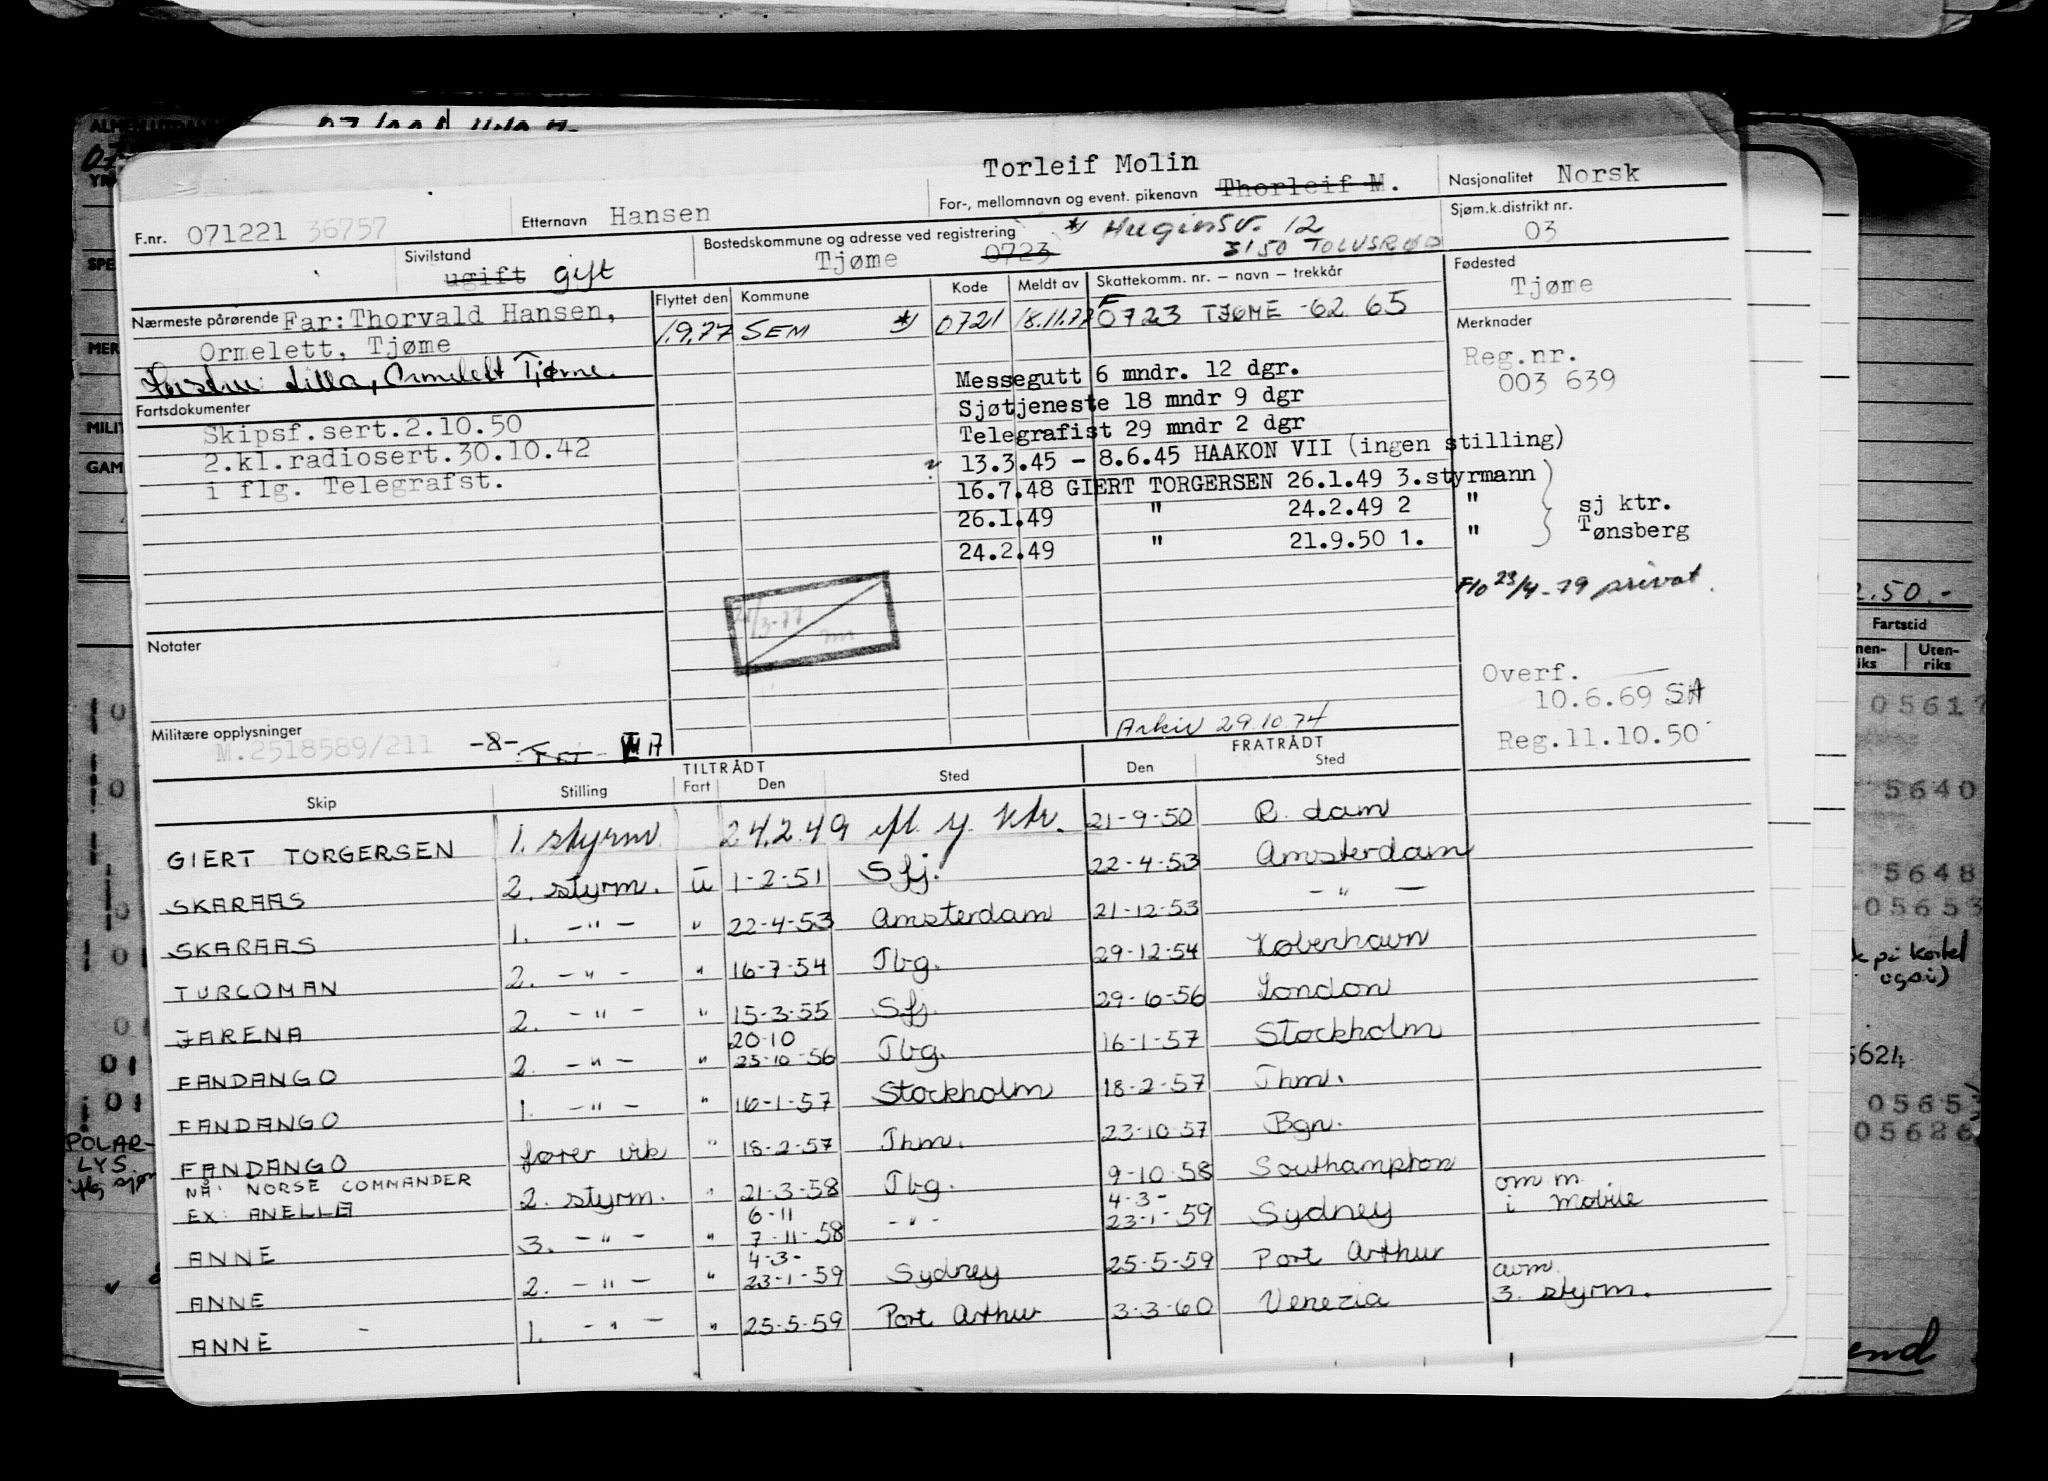 Torleif Molin
F.nr. 071221 36757 Etternavn Hansen For-, mellomnavn og event. pikenavn Thorleif M. Nasjonalitet Norsk
Sivilstand ugift gift Bostedskommune og adresse ved registrering Tjøme 0723 *) Huginsv. 12 Sjøm.k.distrikt nr. 03
3150 TOLVSRØD
Nærmeste pårørende Far: Thorvald Hansen,
Ormelett, Tjøme
Hustru: Lilla, Ormelett Tjøme.
Flyttet den Kommune Kode Meldt av Skattekomm. nr. – navn – trekkår
1.9.77 SEM *) 0721 18.11.77 F 0723 TJØME -62 65
Fødested
Tjøme
Merknader
Reg.nr.
003 639
Fartsdokumenter
Skipsf.sert.2.10.50
2.kl.radiosert.30.10.42
i flg. Telegrafst.
Messegutt 6 mndr. 12 dgr.
Sjøtjeneste 18 mndr 9 dgr
Telegrafist 29 mndr 2 dgr
13.3.45 - 8.6.45 HAAKON VII (ingen stilling)
16.7.48 GIERT TORGERSEN 26.1.49 3.styrmann
26.1.49 " 24.2.49 2 "
24.2.49 " 21.9.50 1. "
sj ktr.
Tønsberg
Flo 23/4-79 privat.
Notater
Overf.
10.6.69 SA
Reg.11.10.50
Militære opplysninger
M.2518589/211 -8-
Arkiv 29.10.74
TILTRÅDT FRATRÅDT
Skip Stilling Fart Den Sted Den Sted
GIERT TORGERSEN 1. styrm. 24.2.49 ifl. sj. ktr. 21-9-50 R.dam
SKARAAS 2. styrm. U 1-2-51 Sfj. 22-4-53 Amsterdam
SKARAAS 1. -"- " 22-4-53 Amsterdam 21-12-53 -"-
TURCOMAN 2. -"- " 16-7-54 Tbg. 29-12-54 København
JARENA 2. -"- " 15-3-55 Sfj. 29-6-56 London
20-10
FANDANGO 2. -"- " 25-10-56 Tbg. 16-1-57 Stockholm
FANDANGO 1. -"- " 16-1-57 Stockholm 18-2-57 Thm.
FANDANGO fører vik " 18-2-57 Thm. 23-10-57 Bgn.
NÅ: NORSE COMMANDER
EX: ANELLA 2. styrm. " 21-3-58 Tbg. 9-10-58 Southampton
6-11 4-3- om m.
ANNE 3. -"- " 7-11-58 -"- 23-1-59 Sydney i Mobile
4-3-
ANNE 2. -"- " 23-1-59 Sydney 25-5-59 Port Arthur
avm.
ANNE 1. -"- " 25-5-59 Port Arthur 3-3-60 Venezia 3. styrm.
2.50.-
Fartstid
Uten-
riks
5640
5648
05653
k på kortet
også)
5624
05653
05626
POLAR-
LYS